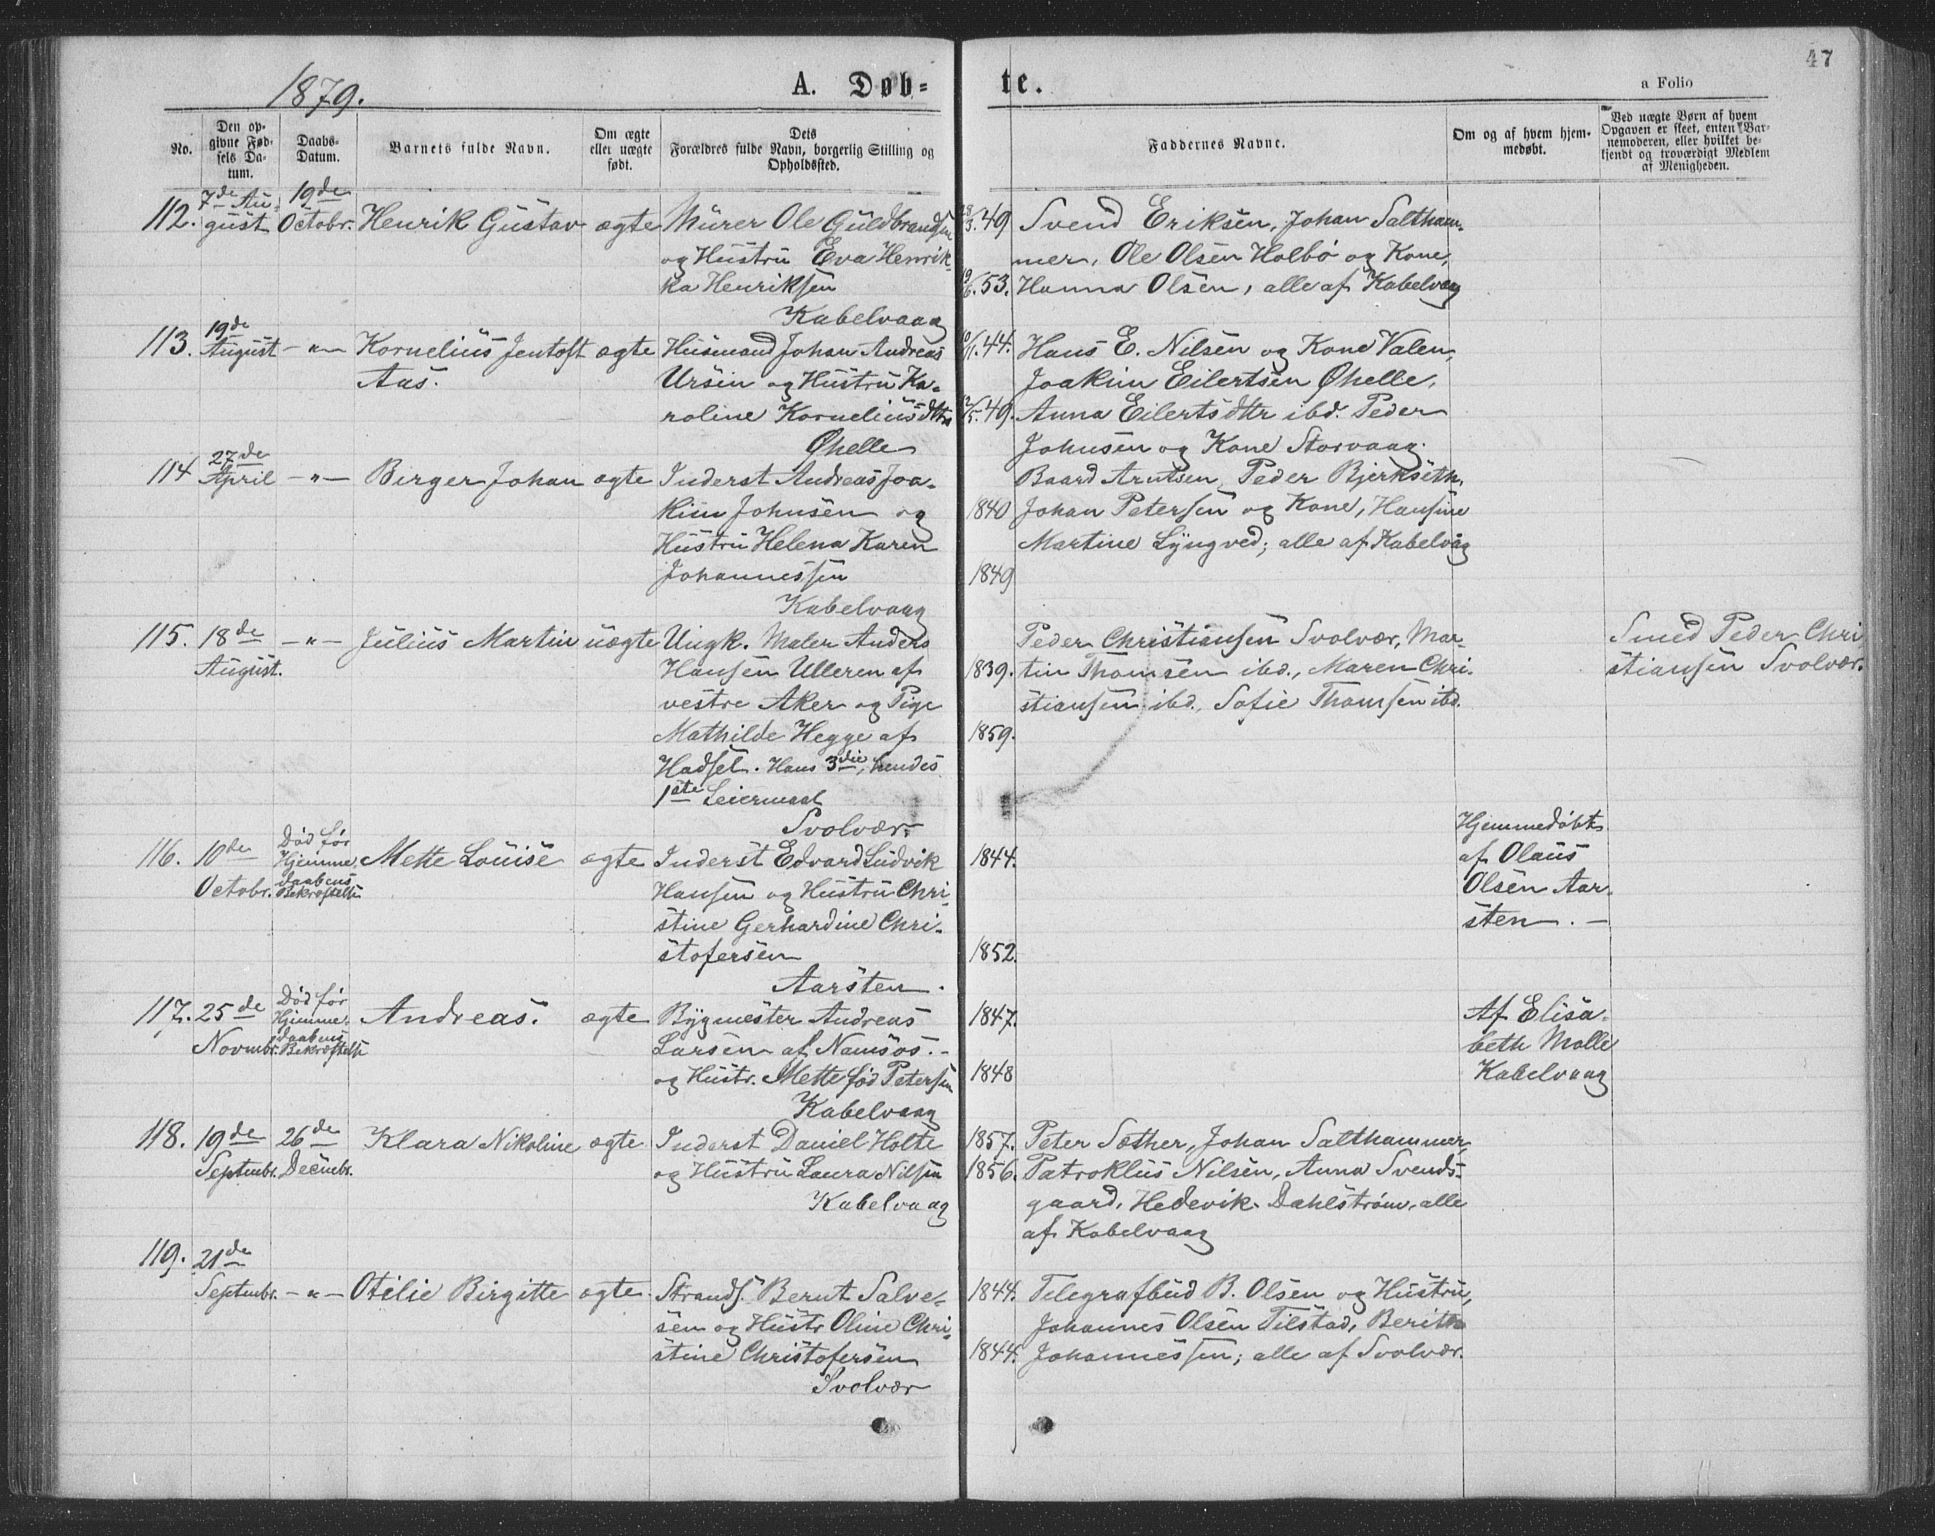 47
1879.
A. Døb-
te.
a Folio
No.
Den op-
givne Fød-
sels Da-
tum.
Daabs-
Datum.
Barnets fulde Navn.
Om ægte
eller uægte
født.
Dets
Forældres fulde Navn, borgerlig Stilling og
Opholdssted.
Faddernes Navne.
Om og af hvem hjem-
medøbt.
Ved uægte Børn af hvem
Opgaven er skeet, enten Bar-
nemoderen, eller hvilket be-
kjendt og troværdigt Medlem
af Menigheden.
112.
7de Au-
gust
19de
Octobr.
Henrik Gustav
ægte
Murer Ole Guldbrandsen
og Hustru Eva Henrik-
ka Henriksen
Kabelvaag
28/3.49
19/6.53.
Svend Eriksen, Johan Saltham-
mer, Ole Olsen Holbø og Kone,
Hanna Olsen, alle af Kabelvaag
113.
19de
August
-"-
Kornelius Jentoft
Aas.
ægte
Husmand Johan Andreas
Ursin og Hustru Ka-
roline Korneliusdtr
Øhelle
10/11.44.
2/5.49.
Hans E. Nilsen og Kone Valen,
Joakim Eilertsen Øhelle,
Anna Eilertsdttr ibd. Peder
Johnsen og Kone Storvaag.
114
27de
April
-"-
Birger Johan
ægte
Inderst Andreas Joa-
kim Johnsen og
Hustru Helena Karen
Johannessen
Kabelvaag
1840
1849
Baard Arntsen, Peder Bjerkseth,
Johan Petersen og Kone, Hansine
Martine Lyngved; alle af Kabelvåg
115.
18de
August.
-"-
Julius Martin
uægte
Ungk. Maler Anders
Hansen Ulleren af
vestre Aker og Pige
Mathilde Hegge af
Hadsel. Hans 3die, hendes
1ste Leiermaal
Svolvær.
1839.
1859.
Peder Christiansen Svolvær, Mar-
tin Thomsen ibd., Maren Chri-
stiansen ibd. Sofie Thomsen ibd.
Smed Peder Chri
stiansen Svolvær.
116.
10de
Octobr.
Død før
Hjemme
daabens
Bekræftelse
Mette Louise
ægte
Inderst Edvard Ludvik
Hansen og Hustru Chri-
stine Gerhardine Chri-
stofersen
Aarsten.
1844.
1852.
Hjemmedøbt
af Olaus
Olsen Aar-
sten. -
117.
25de
Novmbr.
Død før
Hjemme-
daabens
Bekræftelse
Andreas.
ægte
Bygmester Andreas
Larsen af Namsos. -
og Hustr. Mette fød Petersen
Kabelvaag
1847.
1848
Af Elisa-
beth Molle
Kabelvaag
118.
19de
Septmbr.
26de
Decmbr.
Klara Nikoline
ægte
Inderst Daniel Holte
og Hustru Laura Nilsen
Kabelvaag
1857.
1856.
Peter Sæther, Johan Salthammer,
Patroklus Nilsen, Anna Svends-
gaard, Hedevik Dahlstrøm, alle
af Kabelvaag
119.
21de
Septmbr.
-"-
Otilie Birgitte
ægte
Strands. Bernt Salve-
sen og Hustr Oline Chri-
stine Christofersen
Svolvær
1844.
1844.
Telegrafbud B. Olsen og Hustru,
Johannes Olsen Tilstad, Berith
Johannessen; alle af Svolvær.